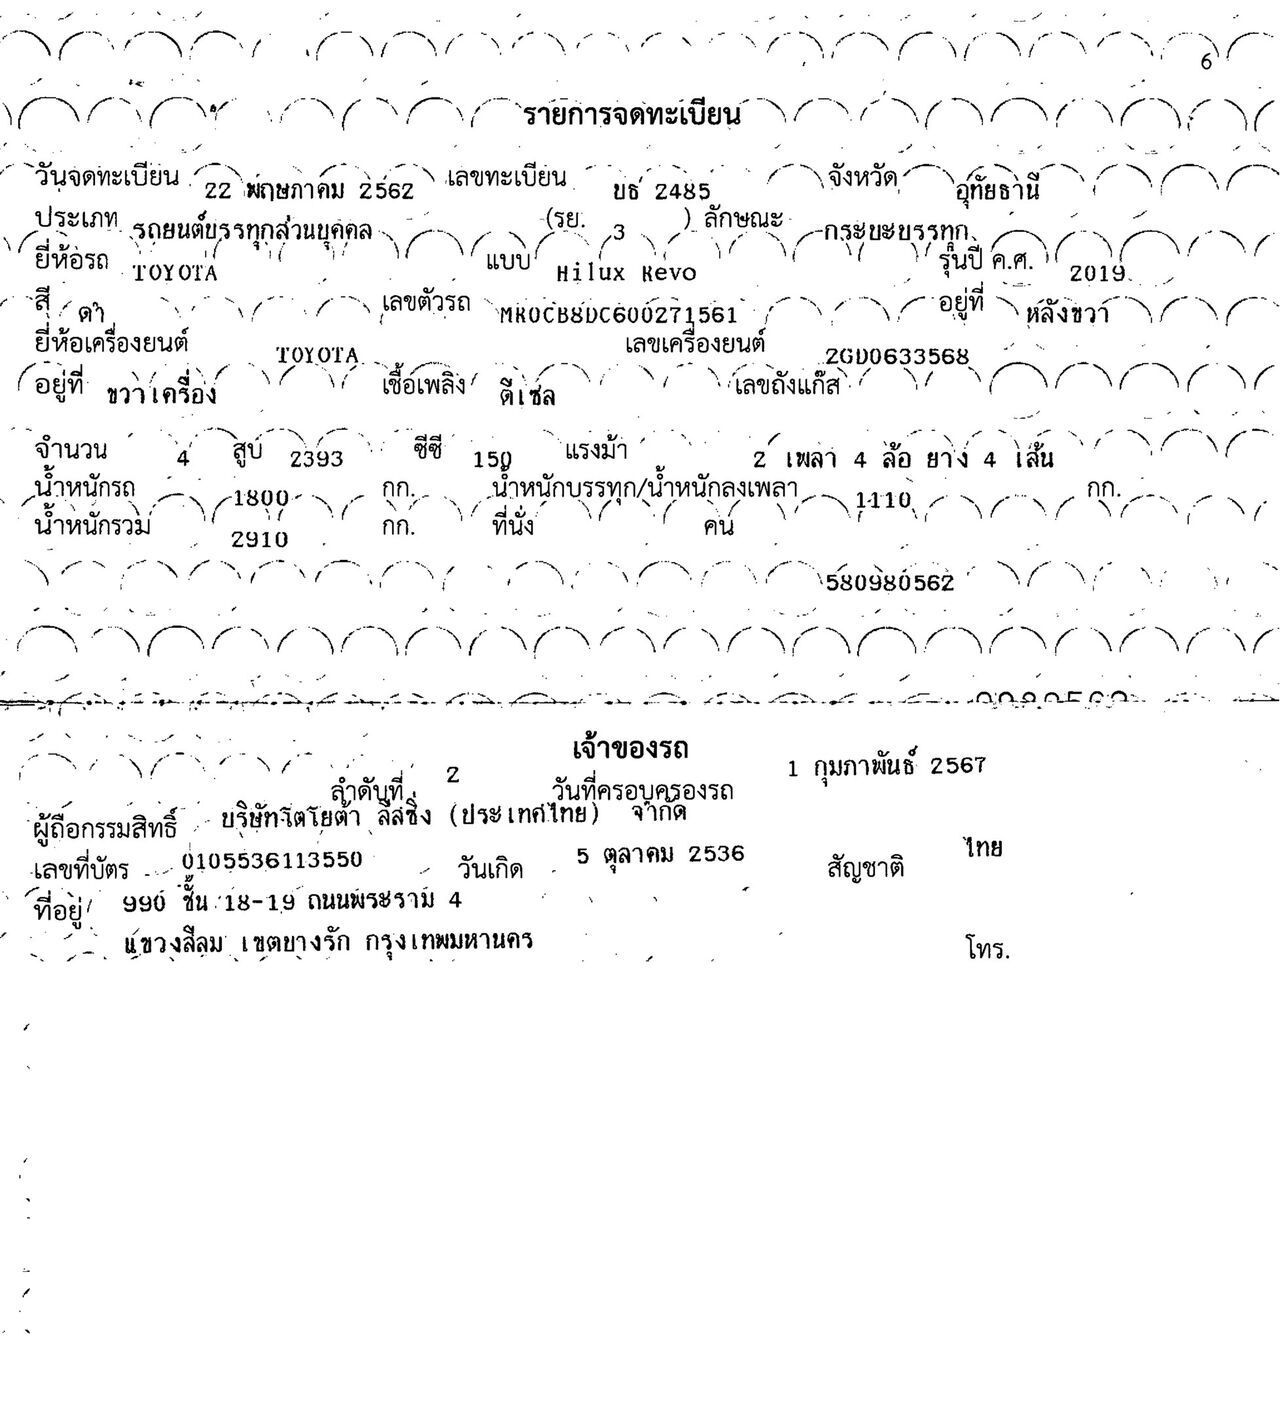 6
รายการจดทะเบียน
วันจดทะเบียน 22 พฤษภาคม 2562 เลขทะเบียน บธ 2485 จังหวัด อุทัยธานี
ประเภท รถยนต์บรรทุกส่วนบุคคล (รย. 3 ) ลักษณะ กระบะบรรทุก
ยี่ห้อรถ TOYOTA แบบ Hilux Revo รุ่นปี ค.ศ. 2019
สี ดำ เลขตัวรถ MR0CB8DC600271561 อยู่ที่ หลังขวา
ยี่ห้อเครื่องยนต์ TOYOTA เลขเครื่องยนต์ 2GD0633568
อยู่ที่ ขวาเครื่อง เชื้อเพลิง ดีเซล เลขถังแก๊ส
จำนวน 4 สูบ 2393 ซีซี 150 แรงม้า 2 เพลา 4 ล้อ ยาง 4 เส้น
น้ำหนักรถ 1800 กก. น้ำหนักบรรทุก/น้ำหนักลงเพลา 1110 กก.
น้ำหนักรวม 2910 กก. ที่นั่ง คน
580980562
เจ้าของรถ
ลำดับที่ 2 วันที่ครอบครองรถ 1 กุมภาพันธ์ 2567
ผู้ถือกรรมสิทธิ์ บริษัทโตโยต้า ลีสซิ่ง (ประเทศไทย) จำกัด
เลขที่บัตร 0105536113550 วันเกิด 5 ตุลาคม 2536 สัญชาติ ไทย
ที่อยู่ 990 ชั้น 18-19 ถนนพระราม 4
แขวงสีลม เขตบางรัก กรุงเทพมหานคร โทร.